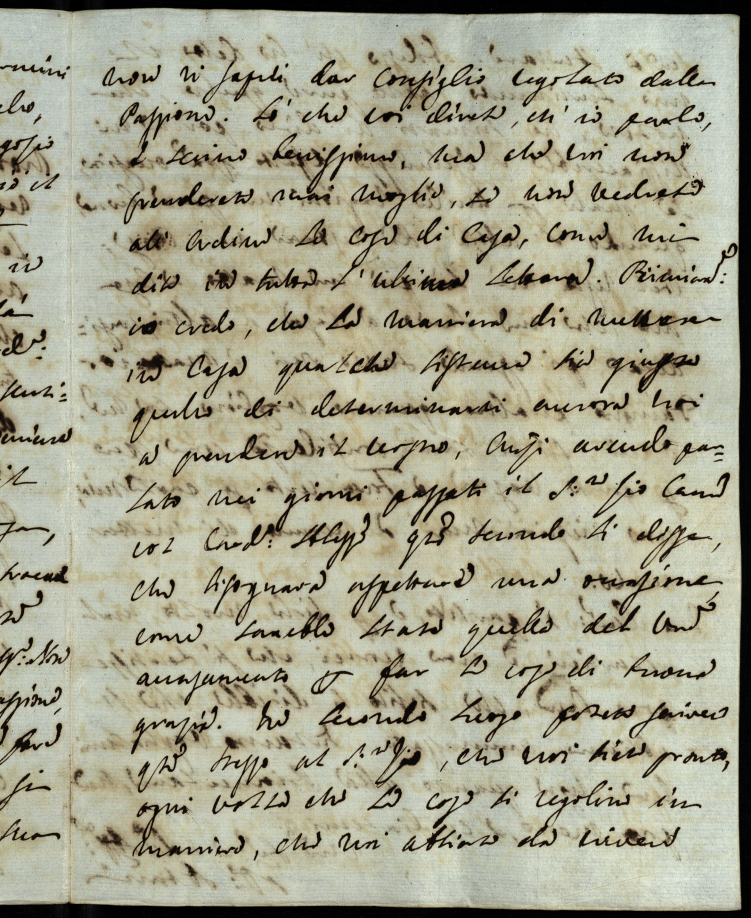 non vi sapesti dar consiglio regolato dalla
Passione. Lo che voi direte, ch' io parlo,
e scrivo benissimo, ma che voi non
prenderete mai moglie, se non vedrete
all' ordine le cose di Casa, come mi
dite in tutta l' ultima lettera.
io credo, che la maniera di mettere
in Casa qualche sistema sia giusto
quello di determinarsi ancora voi
a prendere il, anzi avendo par=
lato nei giorni passati il S.r Zio Cam
col Card: quo secondo li disse,
che bisognava aspettare una occasione,
come sarebbe stato quello del vro
accasamento per far le cose di buona
grazia. In secondo luogo potete scrivere
qto stesso al S.r Zio, che voi siete pronto,
ogni volta che le cose si regolino in
maniera, che voi abbiate da vivere
rmini
cho,
il
in
la
senti=
il
Non
assione,
fare
sua